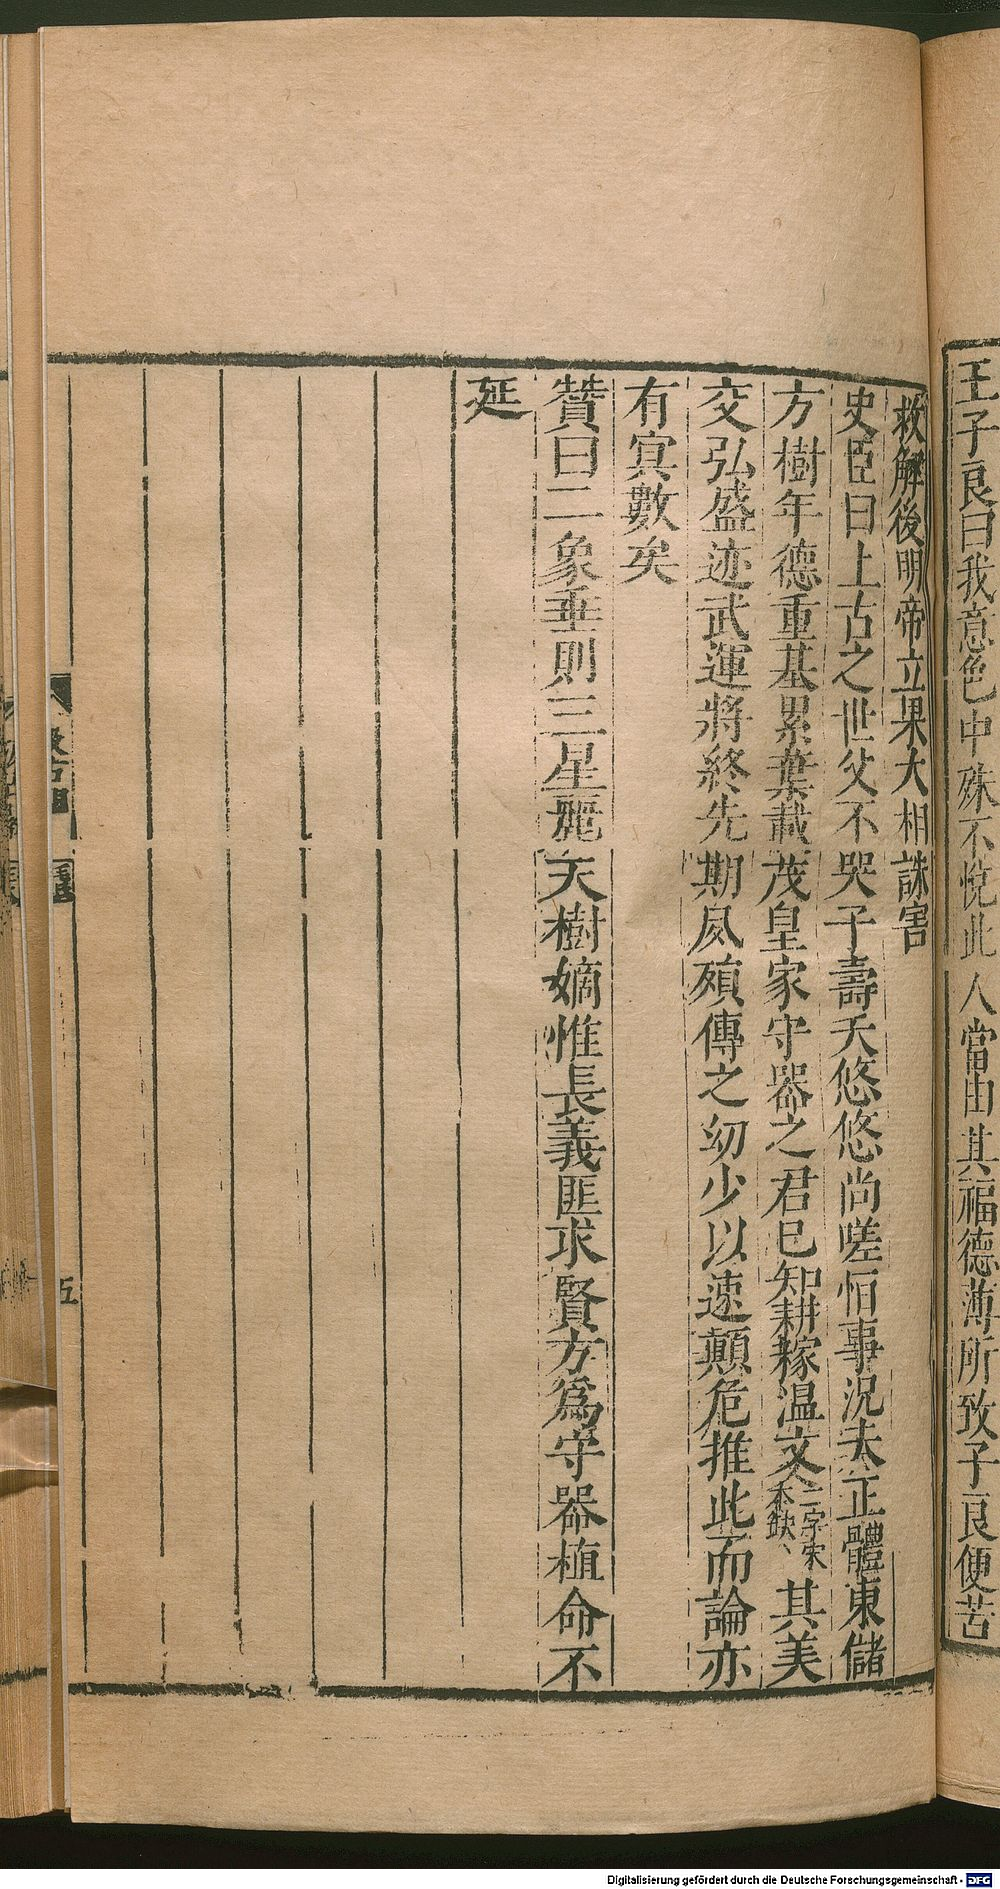 王子良曰我意色中殊不悅此人當由其福德薄所致子良便苦
救解後明帝立果大相誅害
史臣曰上古之世父不哭子壽夭悠悠尚嗟恒事況夫正體東儲
方樹年德重基累葉載茂皇家守器之君已知耕稼温文二字宋本缺、其美
交弘盛迹武運將終先期夙殞傳之幼少以速顛危推此而論亦
有冥數矣
贊曰二象垂則三星麗天樹嫡惟長義匪求賢方爲守器植命不
延
汲古閣
五
Digitalisierung gefördert durch die Deutsche Forschungsgemeinschaft - DFG